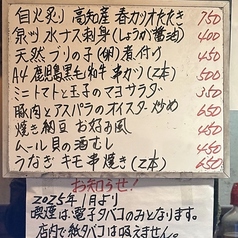 自火炙り 高知産 春カツオたたき 750
泉州 水ナス刺身(しょうが醤油) 400
天然ブリの子(卵)煮付け 450
A4 鹿児島黒毛和牛 串カツ(2本) 500
ミニトマトと玉子のマヨサラダ 350
豚肉とアスパラのオイスター炒め 650
焼き納豆 お好み風 450
ムール貝の酒むし 450
うなぎ キモ串焼き(2本) 650
お知らせ!
2025年1月より
喫煙は電子タバコのみとなります。
店内で紙タバコは吸えません。